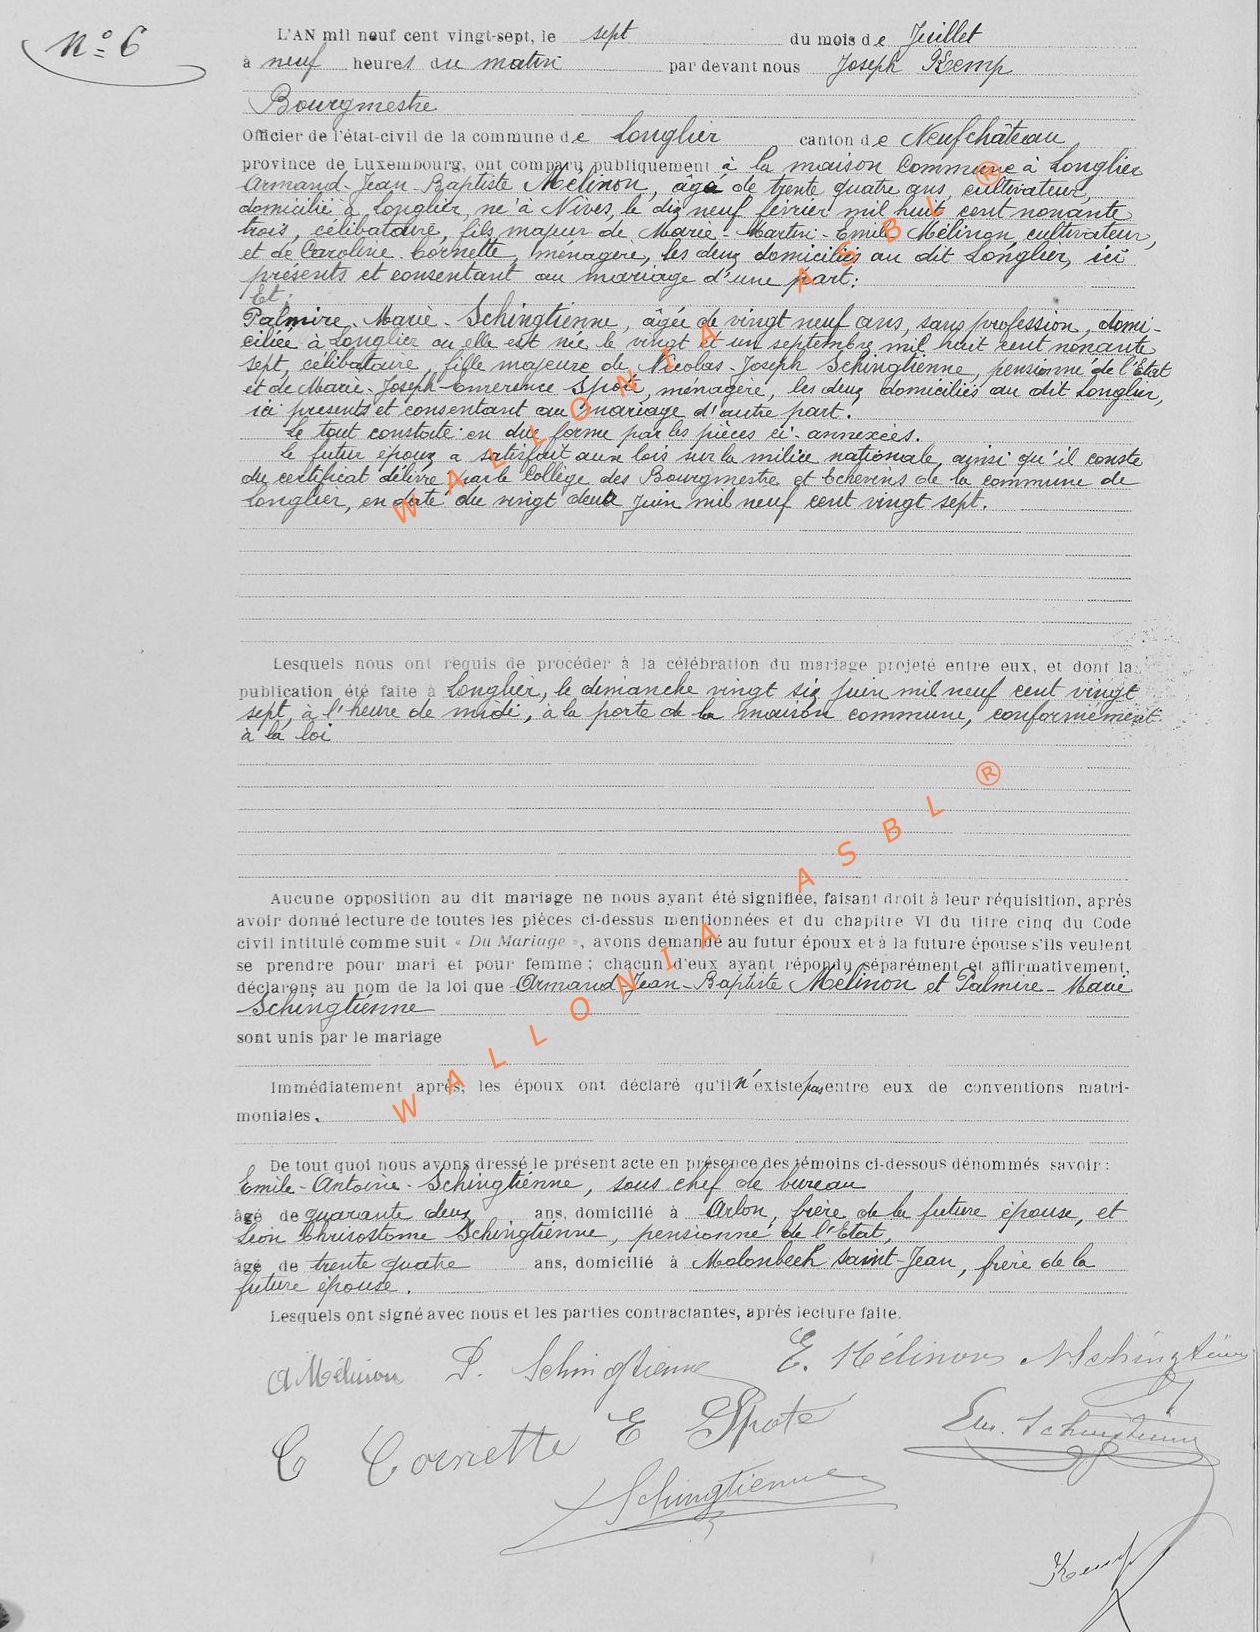 N° 6
L'AN mil neuf cent vingt-sept, le sept du mois de Juillet
à neuf heures du matin par devant nous Joseph Kemp
Bourgmestre
Officier de l'état-civil de la commune de Longlier canton de Neufchâteau
province de Luxembourg, ont comparu publiquement à la maison Commune à Longlier
Armand-Jean-Baptiste Mélinon, âgé de trente quatre ans, cultivateur,
domicilié à Longlier, né à Nives, le dix neuf février mil huit cent nonante
trois, célibataire, fils majeur de Marie-Martin-Emile Mélinon, cultivateur,
et de Caroline Cornette, ménagère, les deux domiciliés au dit Longlier, ici
présents et consentant au mariage d'une part;
Et;
Palmire-Marie-Schingtienne, âgée de vingt neuf ans, sans profession, domi-
ciliée à Longlier où elle est née le vingt et un septembre mil huit cent nonante
sept, célibataire, fille majeure de Nicolas-Joseph Schingtienne, pensionné de l'Etat
et de Marie-Joseph-Emerence Spote, ménagère, les deux domiciliés au dit Longlier,
ici présents et consentant au mariage d'autre part.
Le tout constaté en due forme par les pièces ci-annexées.
Le futur époux a satisfait aux lois sur la milice nationale, ainsi qu'il conste
du certificat délivré par le Collège des Bourgmestre et Echevins de la commune de
Longlier, en date du vingt deux Juin mil neuf cent vingt sept.
Lesquels nous ont requis de procéder à la célébration du mariage projeté entre eux, et dont la
publication été faite à Longlier, le dimanche vingt six juin mil neuf cent vingt
sept, à l'heure de midi, à la porte de la maison commune, conformément
à la loi
Aucune opposition au dit mariage ne nous ayant été signifiée, faisant droit à leur réquisition, après
avoir donné lecture de toutes les pièces ci-dessus mentionnées et du chapitre VI du titre cinq du Code
civil intitulé comme suit « Du Mariage », avons demandé au futur époux et à la future épouse s'ils veulent
se prendre pour mari et pour femme ; chacun d'eux ayant répondu séparément et affirmativement,
déclarons au nom de la loi que Armand Jean-Baptiste Mélinon et Palmire-Marie
Schingtienne
sont unis par le mariage
Immédiatement après, les époux ont déclaré qu'il n'existe pas entre eux de conventions matri-
moniales.
De tout quoi nous avons dressé le présent acte en présence des témoins ci-dessous dénommés savoir :
Emile-Antoine-Schingtienne, sous chef de bureau
âgé de quarante deux ans, domicilié à Arlon, frère de la future épouse, et
Léon Chrisostome Schingtienne, pensionné de l'Etat,
âgé de trente quatre ans, domicilié à Molenbeek saint-Jean, frère de la
future épouse.
Lesquels ont signé avec nous et les parties contractantes, après lecture faite.
A Mélinon P. Schingtienne E. Mélinon N Schingtienne
C Cornette E Spote Em. Schingtienne
L Schingtienne
Kemp
WALLONIA ASBL ®
WALLONIA ASBL ®